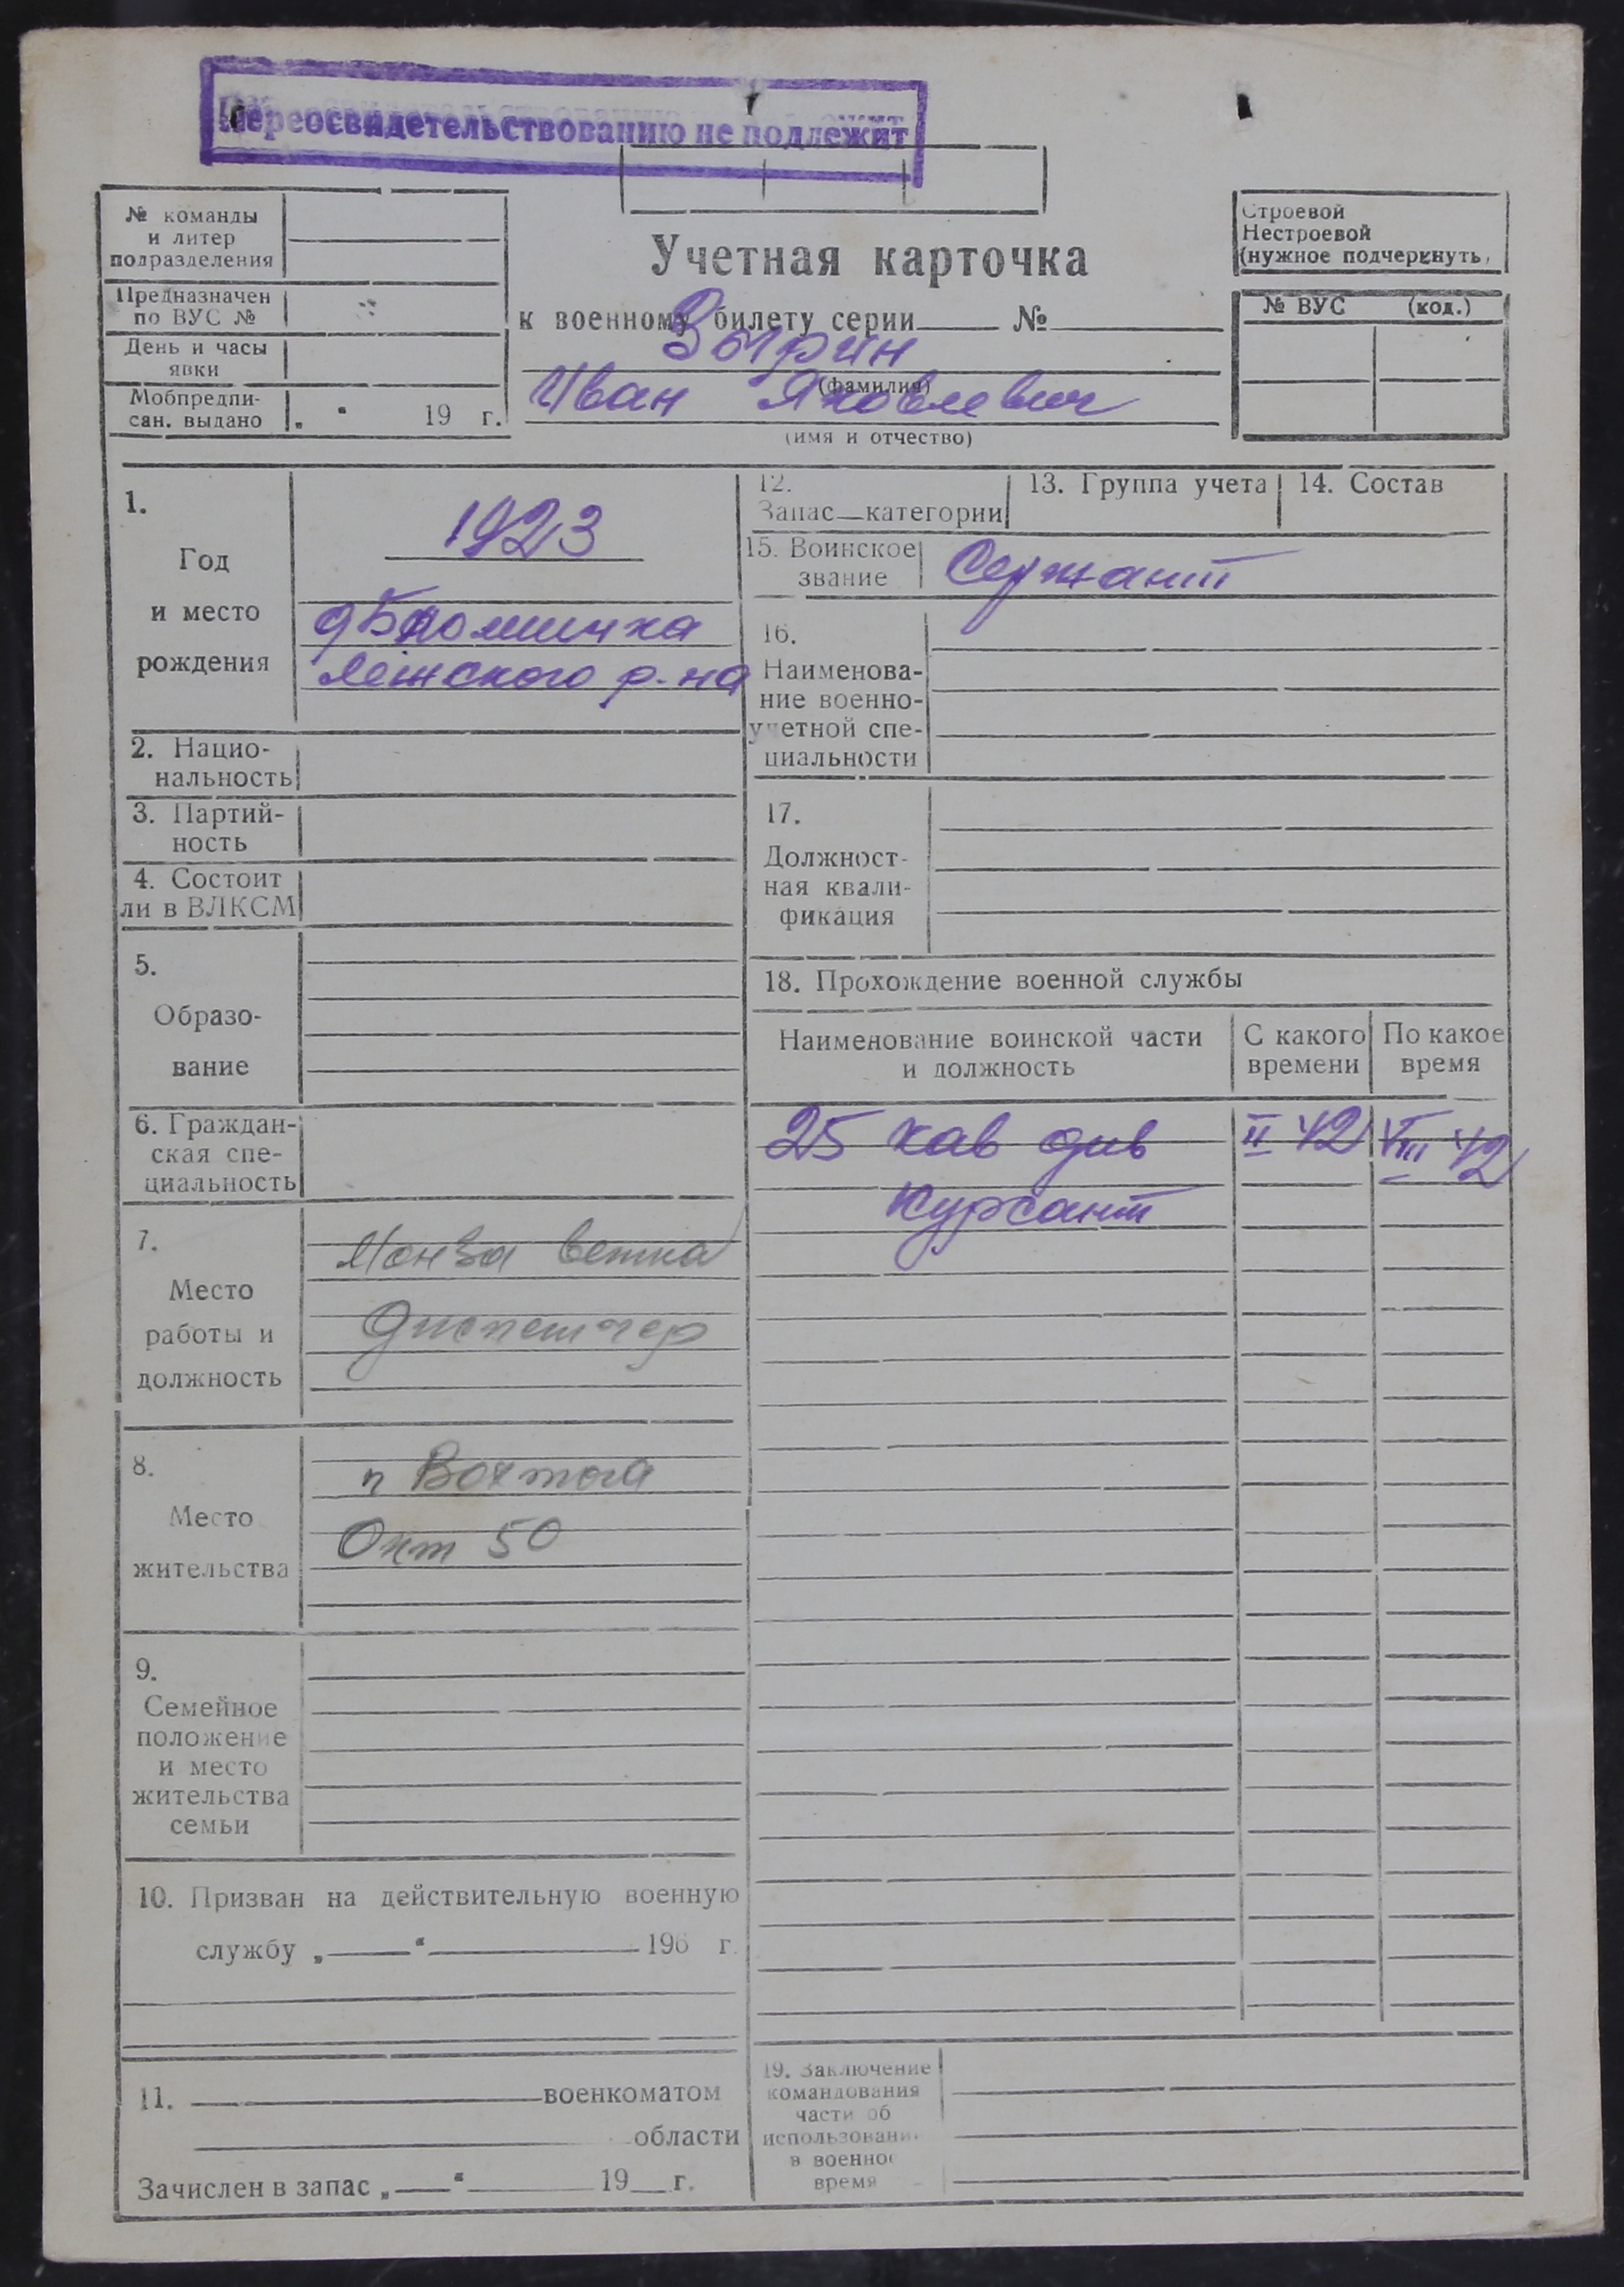 Переосвидетельствованию не подлежит
№ команды
и литер
подразделения
Предназначен
по ВУС №
День и часы
явки
Мобпредпи-
сан. выдано „ “ 19 г.
Учетная карточка
к военному билету серии №
Зырин
(фамилия)
Иван Яковлевич
(имя и отчество)
Строевой
Нестроевой
(нужное подчеркнуть,
№ ВУС (код.)
1.
Год
и место
рождения
1923
Лежского р-на
2. Нацио-
нальность
3. Партий-
ность
4. Состоит
ли в ВЛКСМ
5.
Образо-
вание
6. Граждан-
ская спе-
циальность
7.
Место
работы и
должность
Монза ветка
Диспетчер
8.
Место
жительства
п Вохтога
Окт 50
9.
Семейное
положение
и место
жительства
семьи
10. Призван на действительную военную
службу „ “ 196 г.
11. военкоматом
области
Зачислен в запас „ “ 19 г.
12.
Запас—категории
13. Группа учета
14. Состав
15. Воинское
звание
Сержант
16.
Наименова-
ние военно-
учетной спе-
циальности
17.
Должност-
ная квали-
фикация
18. Прохождение военной службы
Наименование воинской части
и должность
С какого
времени
По какое
время
25 кав див II 42 VIII 42
курсант
19. Заключение
командования
части об
использовани
в военное
время